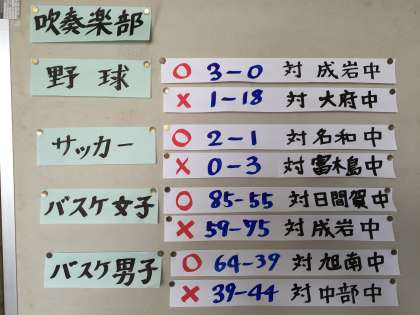 吹奏楽部
野球
○ 3-0 対 成岩中
× 1-18 対 大府中
サッカー
○ 2-1 対 名和中
× 0-3 対 富木島中
バスケ女子
○ 85-55 対日間賀中
× 59-75 対成岩中
バスケ男子
○ 64-39 対 旭南中
× 39-44 対 中部中